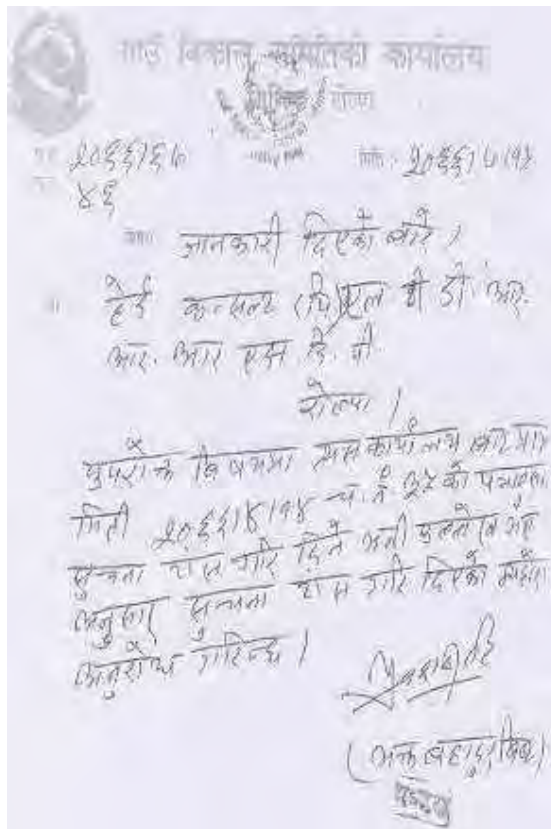 गाउँ विकास समितिको कार्यालय
रोल्पा
२०६६।६७
मिति : २०६६।७।१५
४६
जानकारी दिएको बारे ।
हेर्ड कन्सल्ट (प्रा) एल बी डी. आर.
आर. आर एस दि. पी.
रोल्पा ।
उपरोक्त विषयमा त्यस कार्यालयबाट प्राप्त
मिती २०६६।४।१४ च. नं. ३५ को पत्रानुसार
सुचना टाँस गरि दिने भनी उल्लेख भए
अनुसार सुचना टाँस गरि दिएको व्यहोरा
अनुरोध गरिन्छ ।
(भक्त बहादुर